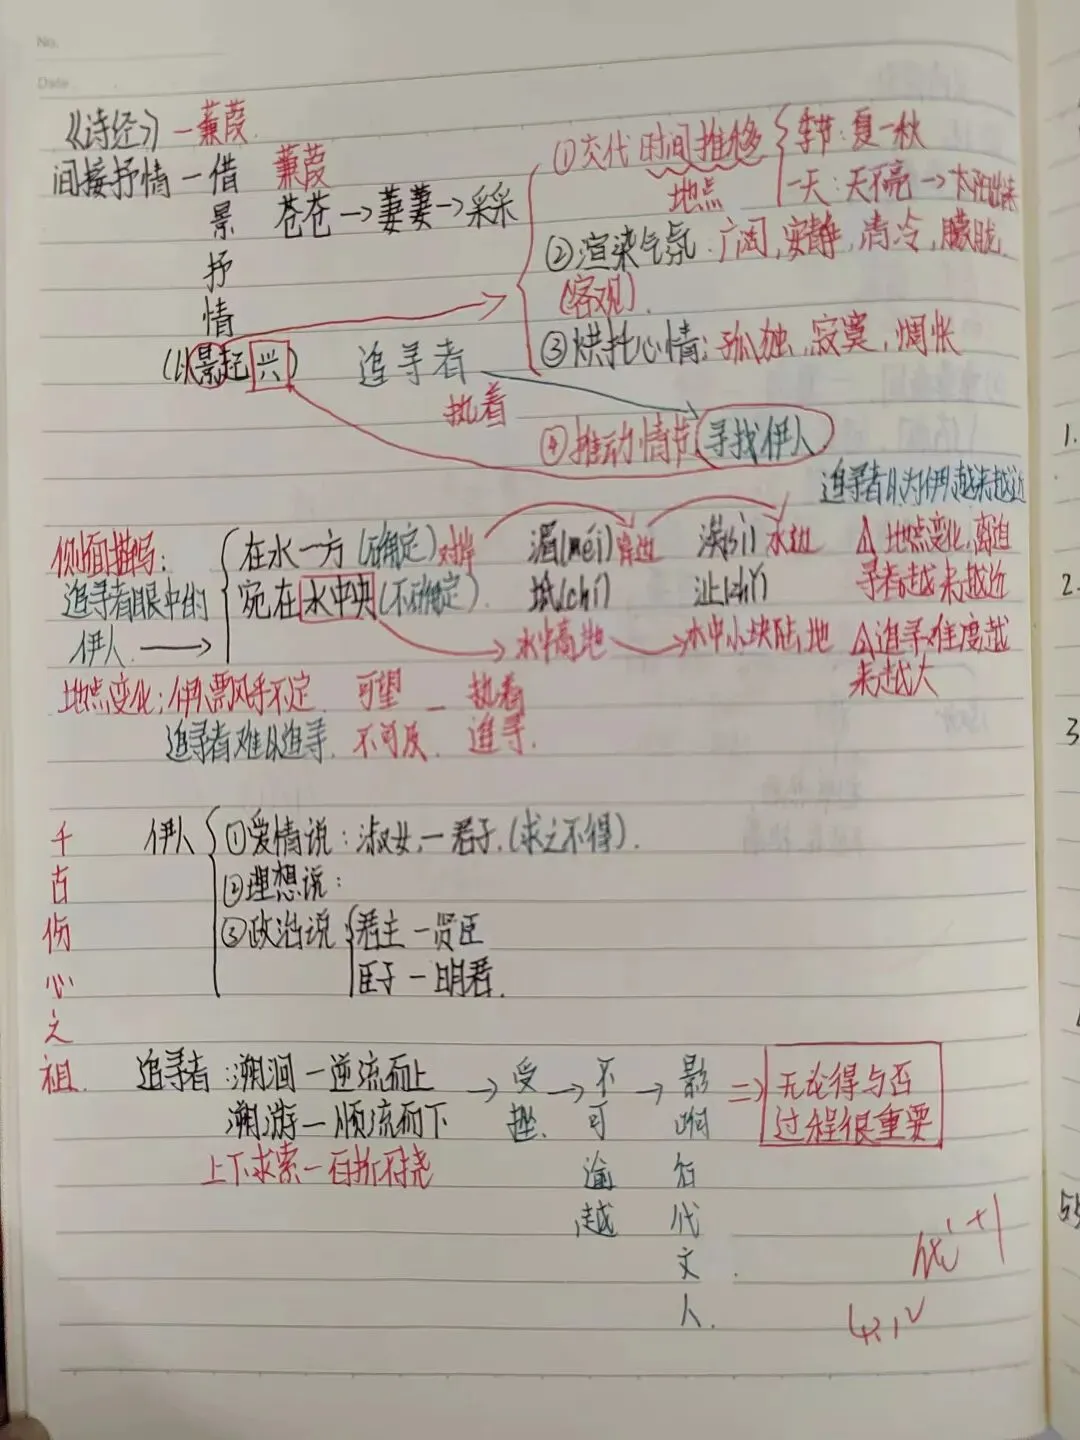 No.
Date
《诗经》—蒹葭.
间接抒情—借景抒情
(以景起兴)
蒹葭
苍苍→萋萋→采采
①交代时间推移
地点
季节:夏—秋
一天:天不亮→太阳出来
②渲染气氛:广阔,安静,清冷,朦胧.
(客观).
③烘托心情:孤独,寂寞,惆怅
追寻者
执着
④推动情节 寻找伊人
追寻者认为伊人越来越近
侧面描写:
追寻者眼中的
伊人→
在水一方(不确定)对岸
宛在水中央(不确定).
湄(méi)岸边
涘(sì)水边
坻(chí)
沚(zhǐ)
→水中高地→水中小块陆地
△地点变化,离追
寻者越来越近
△追寻难度越
来越大
地点变化:伊人飘风乎不定.
追寻者难以追寻.
可望
不可及.
—执着
追寻.
千古伤心之祖.
伊人
①爱情说:淑女—君子.(求之不得).
②理想说:
③政治说
君主—贤臣
臣子—明君.
追寻者:溯洄—逆流而上
溯游—顺流而下
上下求索—百折不挠
→受挫.→不可逾越→影响后代文人.
⇒无论得与否
过程很重要
优+
1.
2.
3